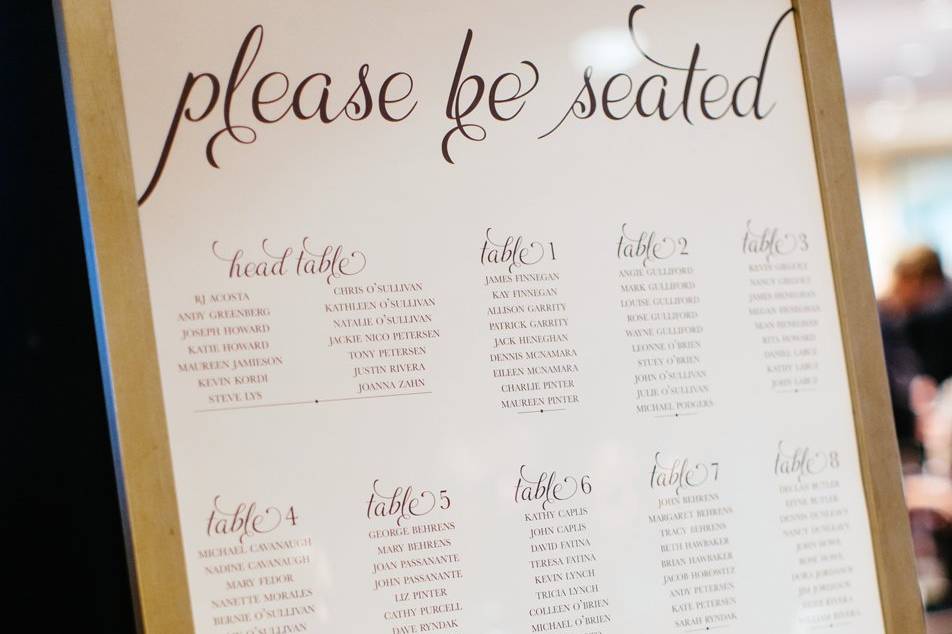 please be seated
head table
RJ ACOSTA
ANDY GREENBERG
JOSEPH HOWARD
KATIE HOWARD
MAUREEN JAMIESON
KEVIN KORDI
STEVE LYS
CHRIS O'SULLIVAN
KATHLEEN O'SULLIVAN
NATALIE O'SULLIVAN
JACKIE NICO PETERSEN
TONY PETERSEN
JUSTIN RIVERA
JOANNA ZAHN
table 1
JAMES FINNEGAN
KAY FINNEGAN
ALLISON GARRITY
PATRICK GARRITY
JACK HENEGHAN
DENNIS MCNAMARA
EILEEN MCNAMARA
CHARLIE PINTER
MAUREEN PINTER
table 2
ANGIE GULLIFORD
MARK GULLIFORD
LOUISE GULLIFORD
ROSE GULLIFORD
WAYNE GULLIFORD
LEONNE O'BRIEN
STUEY O'BRIEN
JOHN O'SULLIVAN
JULIE O'SULLIVAN
MICHAEL PODGERS
table 3
KEVIN
NANCY
JAMES HENEGHAN
MEGAN HENEGHAN
SEAN HENEGHAN
RITA HOWARD
DANIEL
KATHY
JOHN
table 4
MICHAEL CAVANAUGH
NADINE CAVANAUGH
MARY FEDOR
NANETTE MORALES
BERNIE O'SULLIVAN
O'SULLIVAN
table 5
GEORGE BEHRENS
MARY BEHRENS
JOAN PASSANANTE
JOHN PASSANANTE
LIZ PINTER
CATHY PURCELL
DAVE RYNDAK
table 6
KATHY CAPLIS
JOHN CAPLIS
DAVID FATINA
TERESA FATINA
KEVIN LYNCH
TRICIA LYNCH
COLLEEN O'BRIEN
MICHAEL O'BRIEN
table 7
JOHN BEHRENS
MARGARET BEHRENS
TRACY BEHRENS
BETH HAWBAKER
BRIAN HAWBAKER
JACOB HOROWITZ
ANDY PETERSEN
KATE PETERSEN
SARAH RYNDAK
table 8
DECLAN BUTLER
BUTLER
DENNIS
NANCY
JOHN HOWE
ROSE HOWE
DORA
JIM
RIVERA
WILLIAM RIVERA